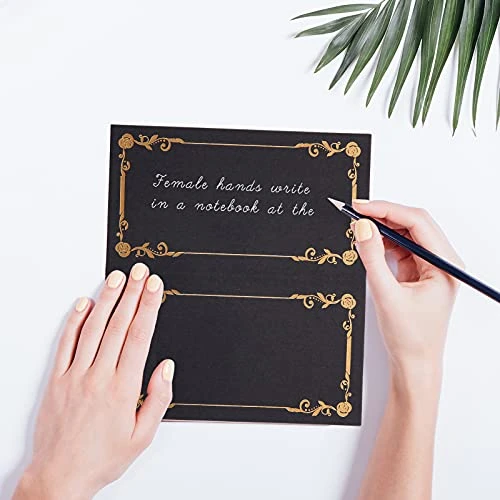 Female hands write
in a notebook at the